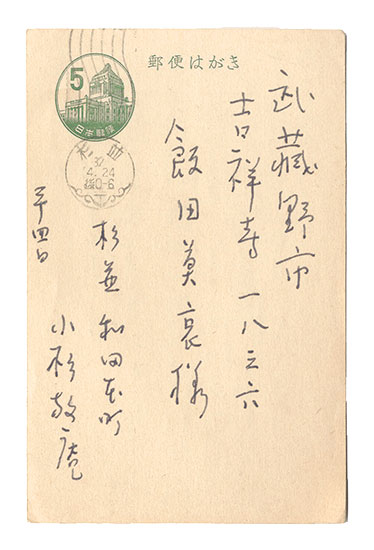 郵便はがき
5
日本郵便
32
4.24
後0-6
武蔵野市
吉祥寺一八三六
飯田莫哀様
杉並和田本町
小杉放庵
廿四日